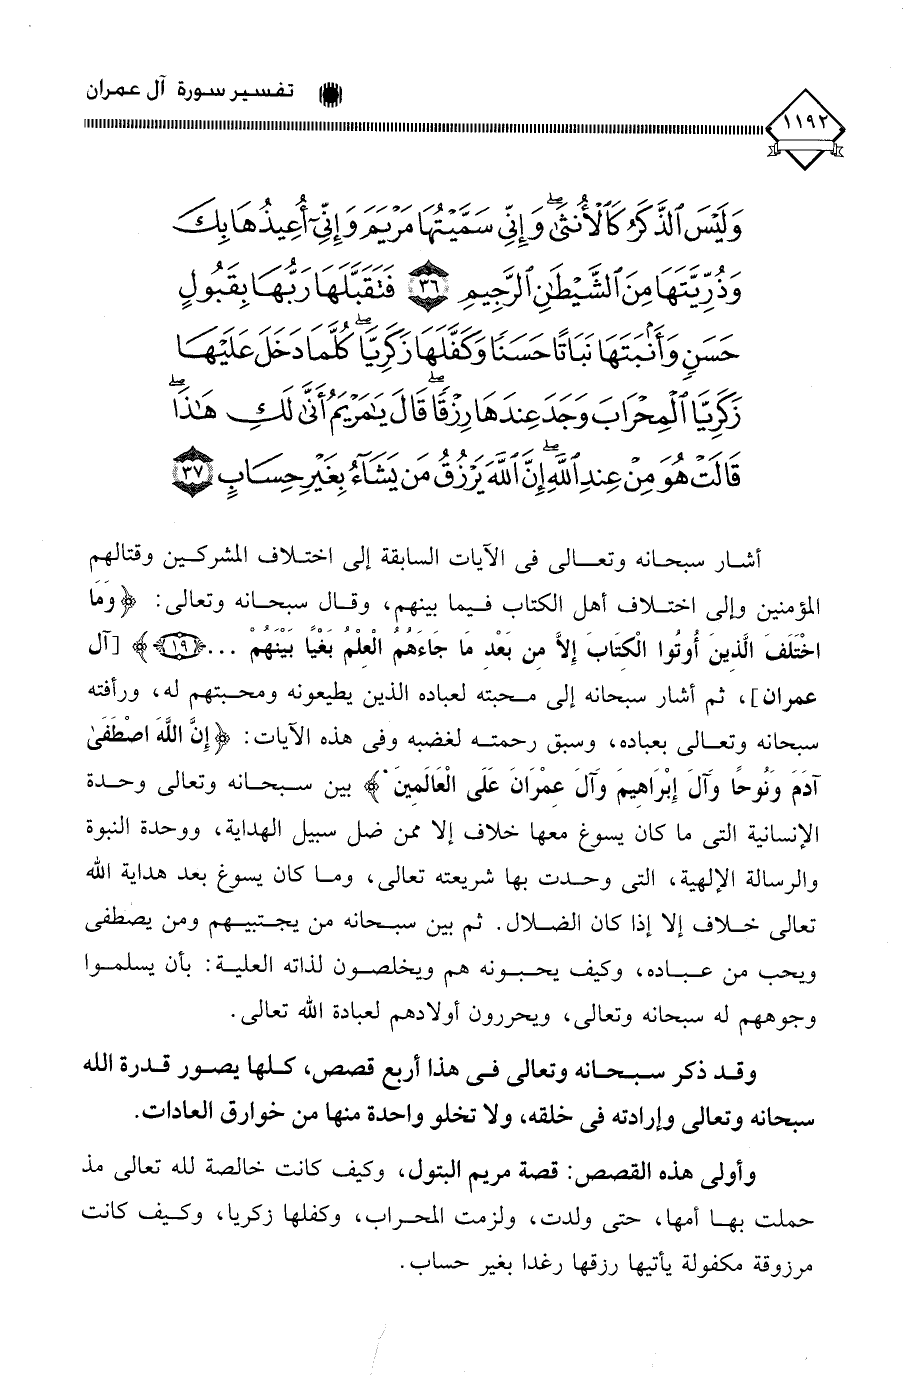 تفسير سورة آل عمران
١١٩٢
وَلَيْسَ ٱلذَّكَرُ كَٱلْأُنثَىٰ ۖ وَإِنِّى سَمَّيْتُهَا مَرْيَمَ وَإِنِّىٓ أُعِيذُهَا بِكَ
وَذُرِّيَّتَهَا مِنَ ٱلشَّيْطَٰنِ ٱلرَّجِيمِ ٣٦ فَتَقَبَّلَهَا رَبُّهَا بِقَبُولٍ
حَسَنٍ وَأَنۢبَتَهَا نَبَاتًا حَسَنًا وَكَفَّلَهَا زَكَرِيَّا ۖ كُلَّمَا دَخَلَ عَلَيْهَا
زَكَرِيَّا ٱلْمِحْرَابَ وَجَدَ عِندَهَا رِزْقًا ۖ قَالَ يَٰمَرْيَمُ أَنَّىٰ لَكِ هَٰذَا ۖ
قَالَتْ هُوَ مِنْ عِندِ ٱللَّهِ ۖ إِنَّ ٱللَّهَ يَرْزُقُ مَن يَشَآءُ بِغَيْرِ حِسَابٍ ٣٧
أشار سبحانه وتعالى فى الآيات السابقة إلى اختلاف المشركين وقتالهم
المؤمنين وإلى اختلاف أهل الكتاب فيما بينهم، وقال سبحانه وتعالى: ﴿وَمَا
اخْتَلَفَ الَّذِينَ أُوتُوا الْكِتَابَ إِلاَّ مِن بَعْدِ مَا جَاءَهُمُ الْعِلْمُ بَغْيًا بَيْنَهُمْ ... ﴿١٩﴾﴾ [آل
عمران]، ثم أشار سبحانه إلى محبته لعباده الذين يطيعونه ومحبتهم له، ورأفته
سبحانه وتعالى بعباده، وسبق رحمته لغضبه وفى هذه الآيات: ﴿إِنَّ اللَّهَ اصْطَفَىٰ
آدَمَ وَنُوحًا وَآلَ إِبْرَاهِيمَ وَآلَ عِمْرَانَ عَلَى الْعَالَمِينَ﴾ بين سبحانه وتعالى وحدة
الإنسانية التى ما كان يسوغ معها خلاف إلا ممن ضل سبيل الهداية، ووحدة النبوة
والرسالة الإلهية، التى وحدت بها شريعته تعالى، وما كان يسوغ بعد هداية الله
تعالى خلاف إلا إذا كان الضلال. ثم بين سبحانه من يجتبيهم ومن يصطفى
ويحب من عباده، وكيف يحبونه هم ويخلصون لذاته العلية: بأن يسلموا
وجوههم له سبحانه وتعالى، ويحررون أولادهم لعبادة الله تعالى.
وقد ذكر سبحانه وتعالى فى هذا أربع قصص، كلها يصور قدرة الله
سبحانه وتعالى وإرادته فى خلقه، ولا تخلو واحدة منها من خوارق العادات.
وأولى هذه القصص: قصة مريم البتول، وكيف كانت خالصة لله تعالى مذ
حملت بها أمها، حتى ولدت، ولزمت المحراب، وكفلها زكريا، وكيف كانت
مرزوقة مكفولة يأتيها رزقها رغدا بغير حساب.